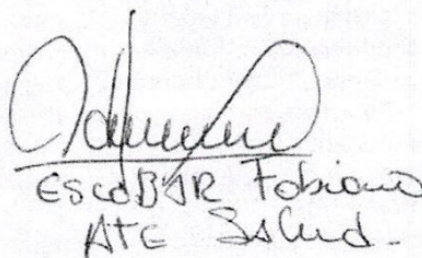 ESCOBAR Fabiana
ATE Salud.